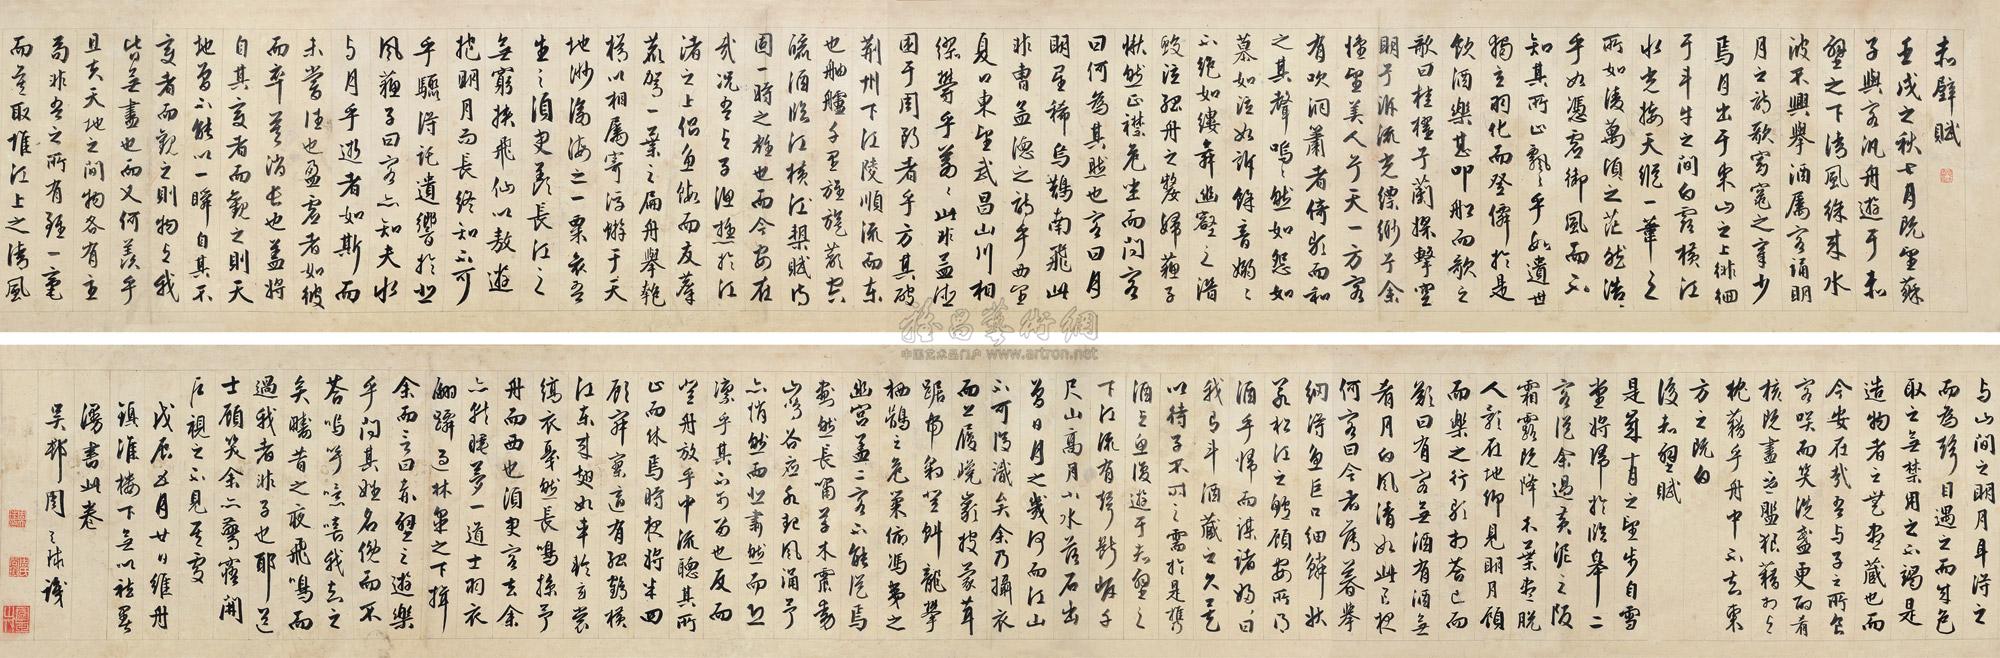 赤壁賦
壬戌之秋七月既望蘇
子與客汎舟遊于赤
壁之下清風徐來水
波不興舉酒屬客誦明
月之詩歌窈窕之章少
焉月出于東山之上徘徊
于斗牛之間白露橫江
水光接天縱一葦之
所如凌萬頃之茫然浩〻
乎如憑虛御風而不
知其所止飄〻乎如遺世
獨立羽化而登僊於是
飲酒樂甚叩舷而歌之
歌曰桂櫂兮蘭槳擊空
明兮泝流光緲緲兮余
懷望美人兮天一方客
有吹洞簫者倚歌而和
之其聲嗚〻然如怨如
慕如泣如訴餘音嫋〻
不絕如縷舞幽壑之潛
蛟泣孤舟之嫠婦蘇子
愀然正襟危坐而問客
曰何為其然也客曰月
明星稀烏鵲南飛此
非曹孟德之詩乎西望
夏口東望武昌山川相
繆鬱乎蒼〻此非孟德
困于周郎者乎方其破
荊州下江陵順流而東
也舳艫千里旌旗蔽空
釃酒臨江橫槊賦詩
固一時之雄也而今安在
哉況吾與子漁樵於江
渚之上侶魚鰕而友麋
鹿駕一葉之扁舟舉匏
樽以相屬寄浮蝣于天
地渺滄海之一粟哀吾
生之須臾羨長江之
無窮挾飛仙以敖遊
抱明月而長終知不可
乎驟得託遺響於悲
風蘇子曰客亦知夫水
與月乎逝者如斯而
未嘗往也盈虛者如彼
而卒莫消長也蓋將
自其變者而觀之則天
地曾不能以一瞬自其不
變者而觀之則物與我
皆無盡也而又何羨乎
且夫天地之間物各有主
苟非吾之所有雖一毫
而莫取惟江上之清風
與山間之明月耳得之
而為聲目遇之而成色
取之無禁用之不竭是
造物者之無盡藏也而
今安在哉吾與子之所食
客喜而笑洗盞更酌肴
核既盡杯盤狼藉相與
枕藉乎舟中不知東
方之既白
後赤壁賦
是歲十月之望步自雪
堂將歸於臨皋二
客從余過黃泥之阪
霜露既降木葉盡脫
人影在地仰見明月顧
而樂之行歌相答已而
歎曰有客無酒有酒無
肴月白風清如此良夜
何客曰今者薄暮舉
網得魚巨口細鱗狀
若松江之鱸顧安所得
酒乎歸而謀諸婦婦曰
我有斗酒藏之久矣
以待子不時之需於是攜
酒與魚復遊于赤壁之
下江流有聲斷岸千
尺山高月小水落石出
曾日月之幾何而江山
不可復識矣余乃攝衣
而上履巉巖披蒙茸
踞虎豹登虯龍攀
栖鶻之危巢俯馮夷之
幽宮蓋二客不能從焉
劃然長嘯草木震動
山鳴谷應水起風涌予
亦悄然而悲肅然而恐
凜乎其不可留也反而
登舟放乎中流聽其所
止而休焉時夜將半四
顧寂寥適有孤鶴橫
江東來翅如車輪玄裳
縞衣戛然長鳴掠予
舟而西也須臾客去余
亦就睡夢一道士羽衣
翩躚過林皋之下揖
余而言曰赤壁之遊樂
乎問其姓名俛而不
答嗚呼噫嘻我知之
矣疇昔之夜飛鳴而
過我者非子也耶道
士顧笑余亦驚寤開
戶視之不見其處
戊辰五月廿日維舟
鎮淮樓下無以祛暑
漫書此卷
吳郡周之球識
雅昌藝術網
中国艺术品门户 www.artron.net